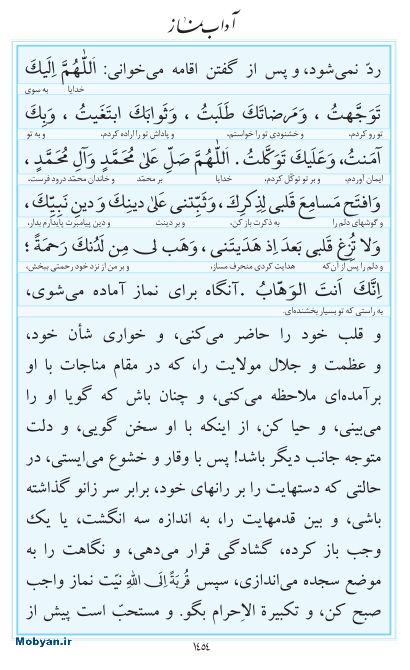 آداب نماز
ردّ نمی‌شود، و پس از گفتن اقامه می‌خوانی: اَللّٰهُمَّ اِلَیکَ
خدایا به سوی
تَوَجَّهتُ ، وَمَرضاتَکَ طَلَبتُ ، وَثَوابَکَ ابتَغَیتُ ، وَبِکَ
تو رو کردم، و خشنودی تو را خواستم، و پاداش تو را اراده کردم، و به تو
آمَنتُ، وَعَلَیکَ تَوَکَّلتُ . اَللّٰهُمَّ صَلِّ عَلیٰ مُحَمَّدٍ وَآلِ مُحَمَّدٍ ،
ایمان آوردم، و بر تو توکّل کردم، خدایا بر محمّد و خاندان محمّد درود فرست،
وَافتَح مَسامِعَ قَلبی لِذِکرِکَ، وَثَبِّتنی عَلیٰ دینِکَ وَدینِ نَبِیِّکَ،
و گوشهای دلم را به ذکرت باز کن، و بر دینت و دین پیامبرت پایدارم بدار،
وَلا تُزِغ قَلبی بَعدَ اِذ هَدَیتَنی، وَهَب لی مِن لَدُنکَ رَحمَةً ؛
و دلم را پس از آن‌که هدایت کردی منحرف مساز، و بر من از نزد خود رحمتی ببخش،
اِنَّکَ اَنتَ الوَهّابُ . آنگاه برای نماز آماده می‌شوی،
به راستی که تو بسیار بخشنده‌ای.
و قلب خود را حاضر می‌کنی، و خواری شأن خود،
و عظمت و جلال مولایت را، که در مقام مناجات با او
برآمده‌ای ملاحظه می‌کنی، و چنان باش که گویا او را
می‌بینی، و حیا کن، از اینکه با او سخن گویی، و دلت
متوجه جانب دیگر باشد! پس با وقار و خشوع می‌ایستی، در
حالتی که دستهایت را بر رانهای خود، برابر سر زانو گذاشته
باشی، و بین قدمهایت را، به اندازه سه انگشت، یا یک
وجب باز کرده، گشادگی قرار می‌دهی، و نگاهت را به
موضع سجده می‌اندازی، سپس قُربَةً اِلَی اللّٰهِ نیّت نماز واجب
صبح کن، و تکبیرة الاِحرام بگو. و مستحبّ است پیش از
Mobyan.ir
۱٤٥٤